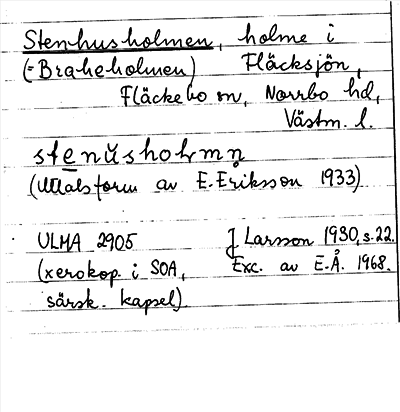 Stenhusholmen, holme i
(=Braheholmen) Fläcksjön,
Fläckebo sn, Norrbo hd,
Västm. l.
stenŭsholmn̥
(Uttalsform av E. Eriksson 1933)
ULMA 2905
(xerokop. i SOA,
särsk. kapsel)
J Larsson 1930, s. 22.
Exc. av E.Å. 1968.